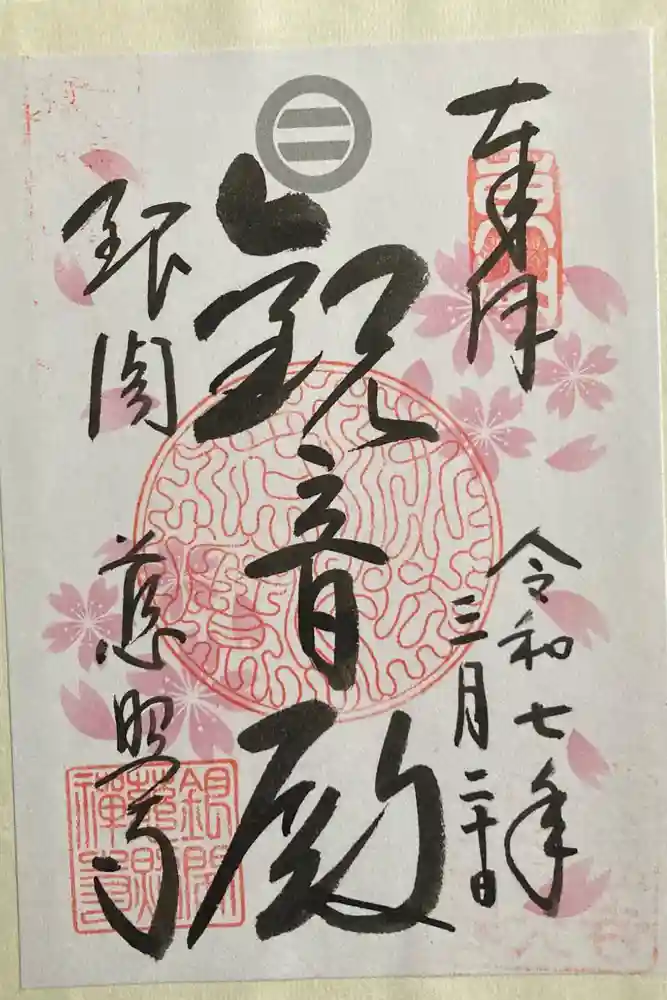 奉拝
令和七年
三月二十日
観音殿
銀閣
慈照寺
銀閣
慈照
禅寺